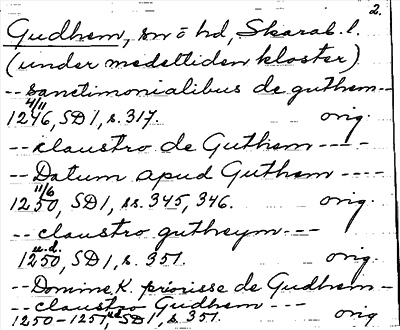 2.
Gudhem, sn o hd, Skarab. l.
(under medeltiden kloster)
-- sanctimonialibus de guthem --
4/11
1246, SD1, s. 317. orig.
-- claustro de Guthem ----
-- Datum apud Guthem ----
11/6
1250, SD1, ss. 345, 346. orig.
-- claustro gutheym ---
u.d.
1250, SD1, s. 351. orig.
-- Domine K. priorisse de Gudhem --
-- claustro Gudhem ---
1250-1257, ud SD1, s. 351. orig